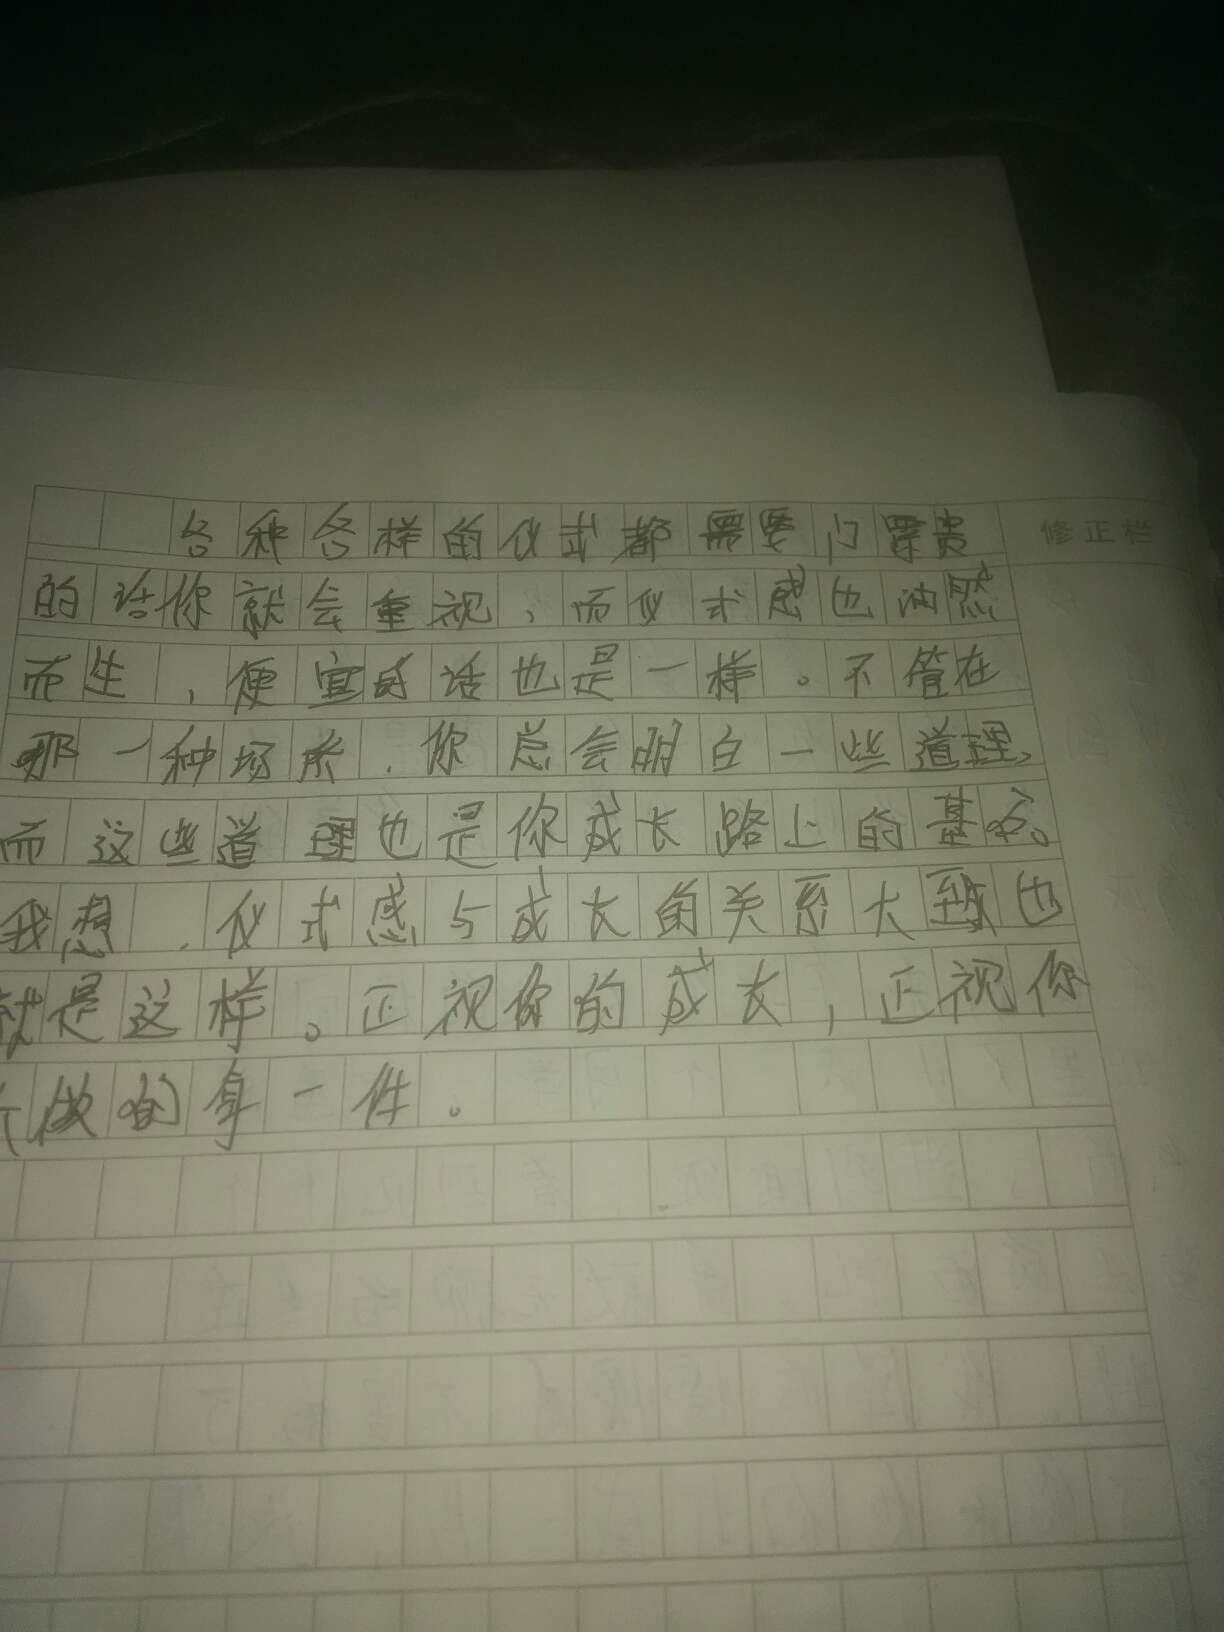 各种各样的仪式都需要门票贵 修正栏
的话你就会重视,而仪式感也油然
而生,便宜的话也是一样。不管在
那一种场系,你总会明白一些道理,
而这些道理也是你成长路上的基
我想,仪式感与成长的关系大致也
就是这样。正视你的成长,正视你
做的每一件。